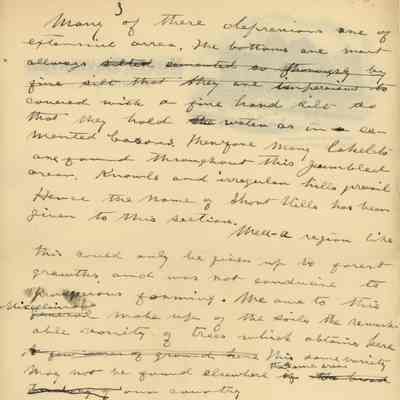 3
Many of these depressions are of
extensive area. The bottoms are most
allways silted cemented so thoroughly by
fine silt that they are impervious to
covered with a fine hard silt so
that they hold the water as in a cem
mented basins. Therefore many Lakelets
are found throughout this jumbled
area. Knowls and irregular hills prevail
Hence the name of Short Hills has been
given to this section.
Well-a region like
this could only be given up to forest
growths and was not conducive to
prosperous farming. We owe to this
Miscellaneous
general make up of the soils the remark
able variety of trees which obtains here
A few acres of ground here This same variety
the same area
may not be found elsewhere of the broad
of our country